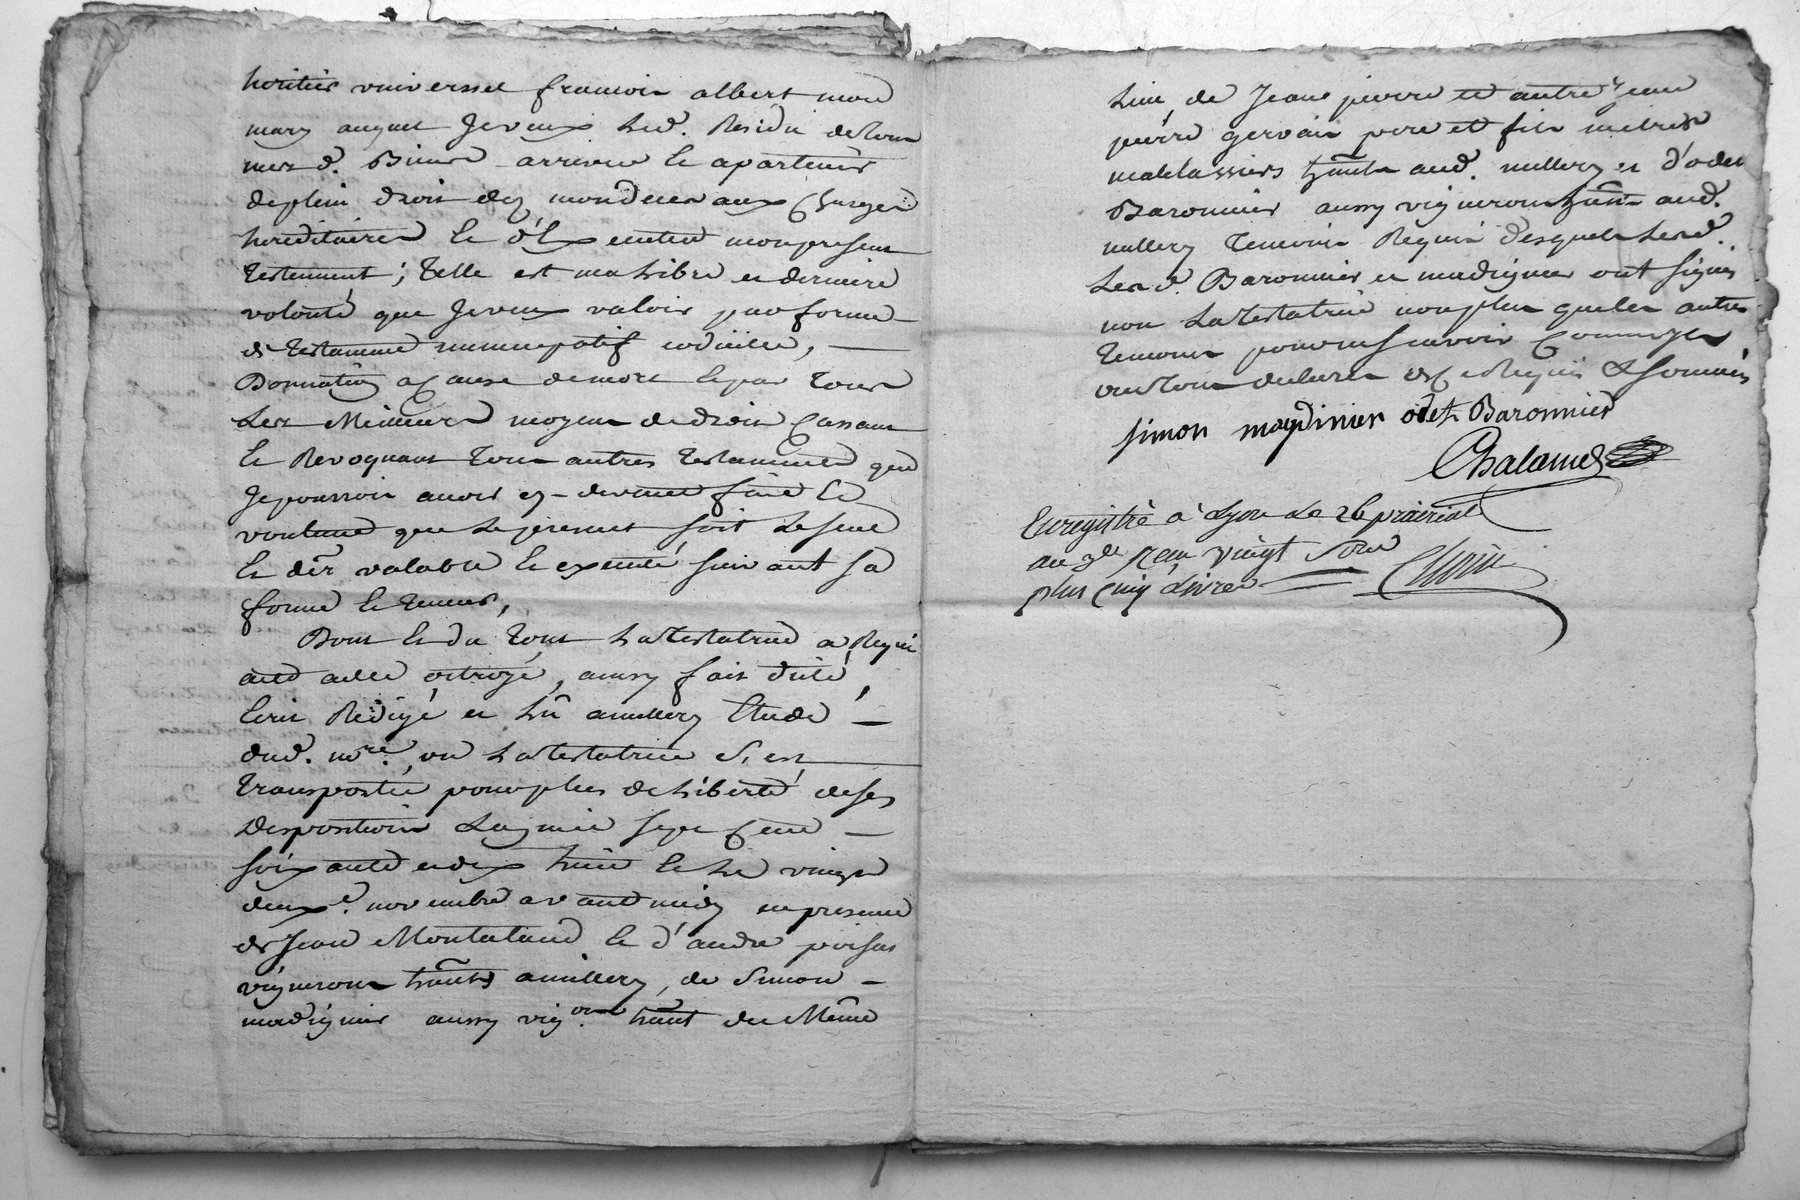 heritier universsel francois albert mon
mary auquel Je veux led. Residu de tous
mes d. Biens arriver & apartenir
de plein droit dez mon deces aux Charges
hereditaires & d'Executer mon present
testement; telle est ma Libre et derniere
volonté que Je veux valoir par forme
de testament nuncupatif codicille,
Donnation a Cause de mort & par tous
Les Meilleurs moyens de droit Cassant
& Revoquant tous autres testaments que
Je pourrois avoir cy-devant fait &
voulant que Le present soit Le seul
& dër valable & executé suivant sa
forme & teneur,
Dont & du tout La testatrice a Requis
acte a elle octroyé, ainsy fait dicté,
Ecrit Redigé et Lû a millery Etude
dud. nore. ou La testatrice s'est
transportée pour plus de Liberté de ses
Dispositions L'an mil sept Cent
soixante et dix huit & Le vingt
deuxe. novembre avant midy en presence
de Jean Montaland & d'andre poisat
vignerons hänts a millery, de Simon
madignier aussy vigon. hänt du Même
Lieu, de Jean pierre et autre Jean
pierre gervais pere et fils maitres
matelassiers hänts aud. millery et d'odet
Baronnier aussy vigneron hänt aud.
millery temoins Requis desquels Lesd.
Les d. Baronnier et madignier ont signés
non La testatrice non plus que les autres
temoins pour ne sçavoir Comme ils
ont tous declarés de ce Requis & sommés
simon maydinier odet Baronnier
Chalamel
Enregistré à Lyon Le 26 prairial
au 3e Reçu vingt sous
plus Cinq Livres